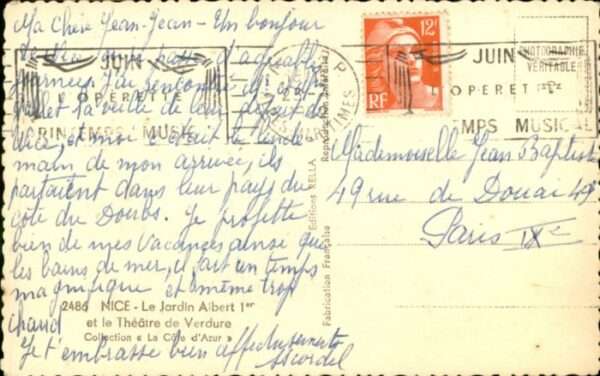 Ma Chère Jean-Jean - Un bonjour
de Nice où je passe d'agréables
journées. J'ai rencontré
la veille de leur départ de
Nice, et moi c'était le lende
main de mon arrivée, ils
partaient dans leur pays du
côté du Doubs. Je profite
bien de mes vacances ainsi que
les bains de mer, il fait un temps
magnifique et même trop
chaud
Je t'embrasse bien affectueusement
2486 NICE - Le Jardin Albert 1er
et le Théâtre de Verdure
Collection « La Côte d'Azur »
Fabrication Française
Editions RELLA
Reproduction
JUIN
OPERETTE
PRINTEMPS MUSICAL
P
MARITIMES
12F
RF
JUIN
OPERETTE
TEMPS MUSICAL
PHOTOGRAPHIE
VERITABLE
Mademoiselle Jean Baptiste
49 rue de Douai 49
Paris IXe